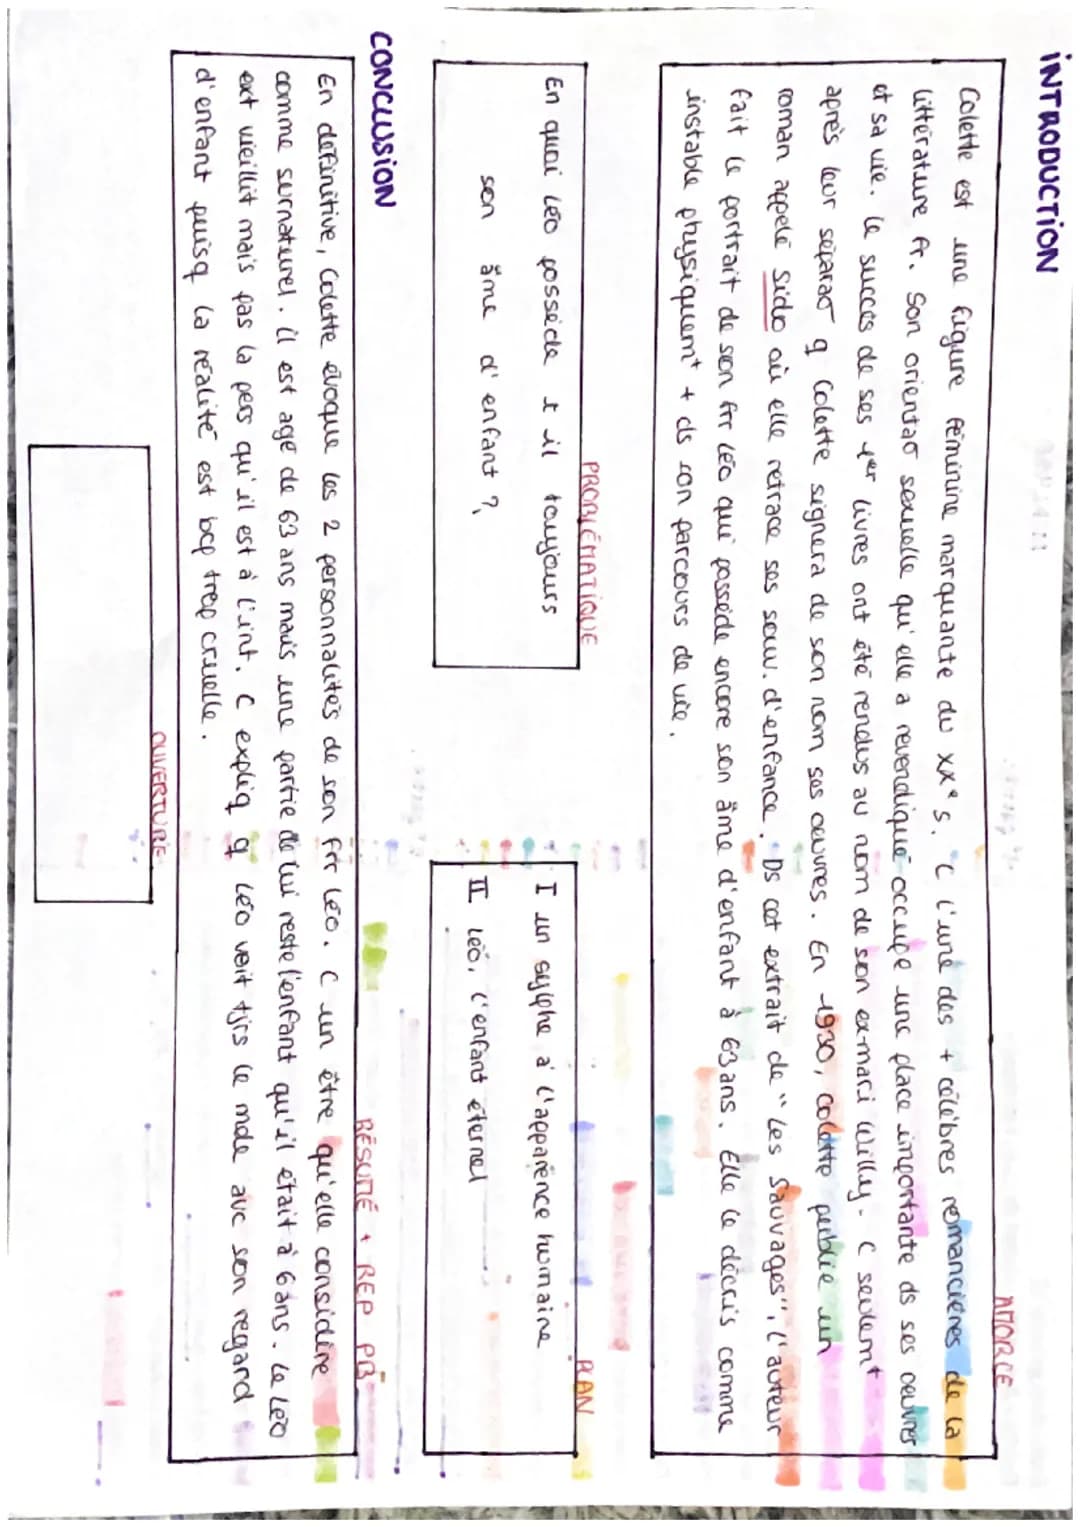 INTRODUCTION
AMORCE
Colette est une figure féminine marquante du XXe s. C l'une des + célèbres romancières de la
littérature fr. Son orientao sexuelle qu'elle a revendiqué occupe une place importante ds ses œuvres
et sa vie. Le succès de ses 1er livres ont été rendus au nom de son ex-mari Willy. C seulemt
après leur séparao q Colette signera de son nom ses œuvres. En 1930, Colette publie un
roman appelé Sido où elle retrace ses souv. d'enfance. Ds cet extrait de "Les Sauvages", l'auteur
fait le portrait de son frr Léo qui possède encore son âme d'enfant à 63 ans. Elle le décris comme
instable physiquemt + ds son parcours de vie.
PROBLÉMATIQUE
En quoi Léo possède t il toujours
son âme d'enfant ?
PLAN
I un sylphe à l'apparence humaine
II Léo, l'enfant éternel
CONCLUSION
RÉSUMÉ + REP PB
En définitive, Colette évoque les 2 personnalités de son frr Léo. C un être qu'elle considère
comme surnaturel. il est age de 63 ans mais une partie de lui reste l'enfant qu'il était à 6 ans. Le Léo
ext vieillit mais pas la pers qu'il est à l'int. C expliq q Léo voit tjrs le monde avc son regard
d'enfant puisq la réalité est bcp trop cruelle.
OUVERTURE